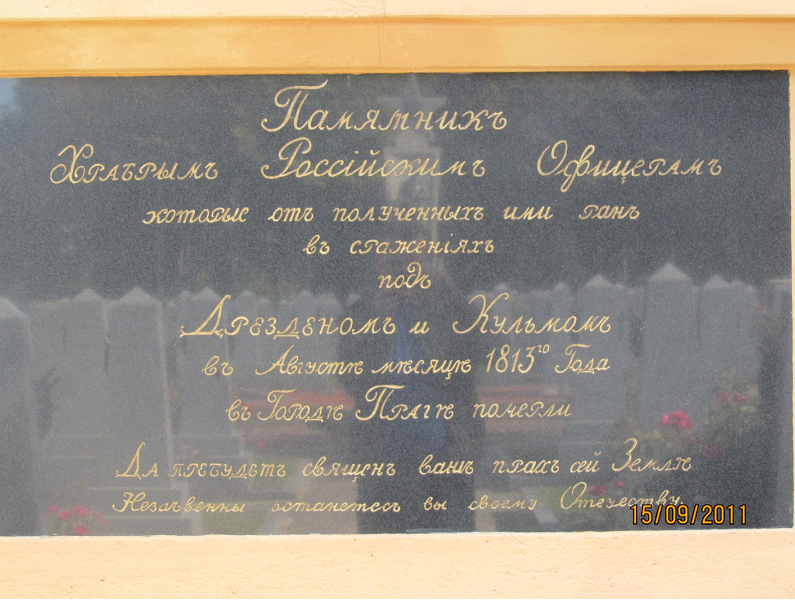 Памятникъ
Храбрымъ Россійскимъ Офицерамъ
которые отъ полученныхъ ими ранъ
въ сраженіяхъ
подъ
Дрезденомъ и Кульмомъ
въ Августѣ мѣсяцѣ 1813го Года
въ Городѣ Прагѣ померли
Да пребудетъ священъ вашъ прахъ сей Землѣ
Незабвенны останетесь вы своему Отечеству.
15/09/2011